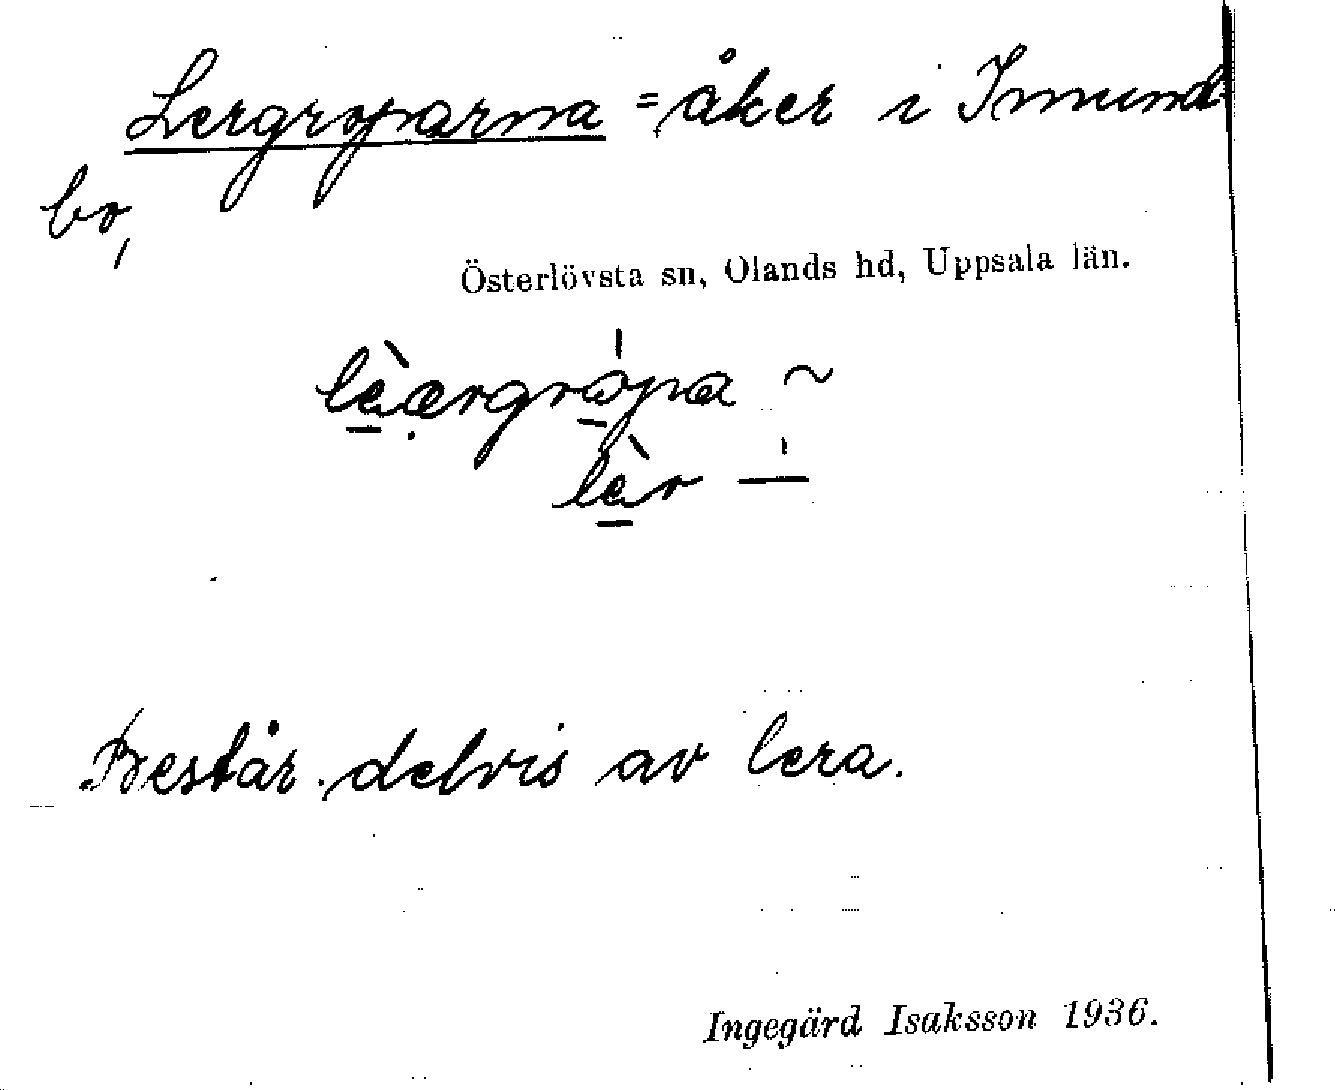 Lergroparna = åker i Imund-
bo,
Österlövsta sn, Olands hd, Uppsala län.
lèærgròpa ~
lèr –
Består delvis av lera.
Ingegärd Isaksson 1936.